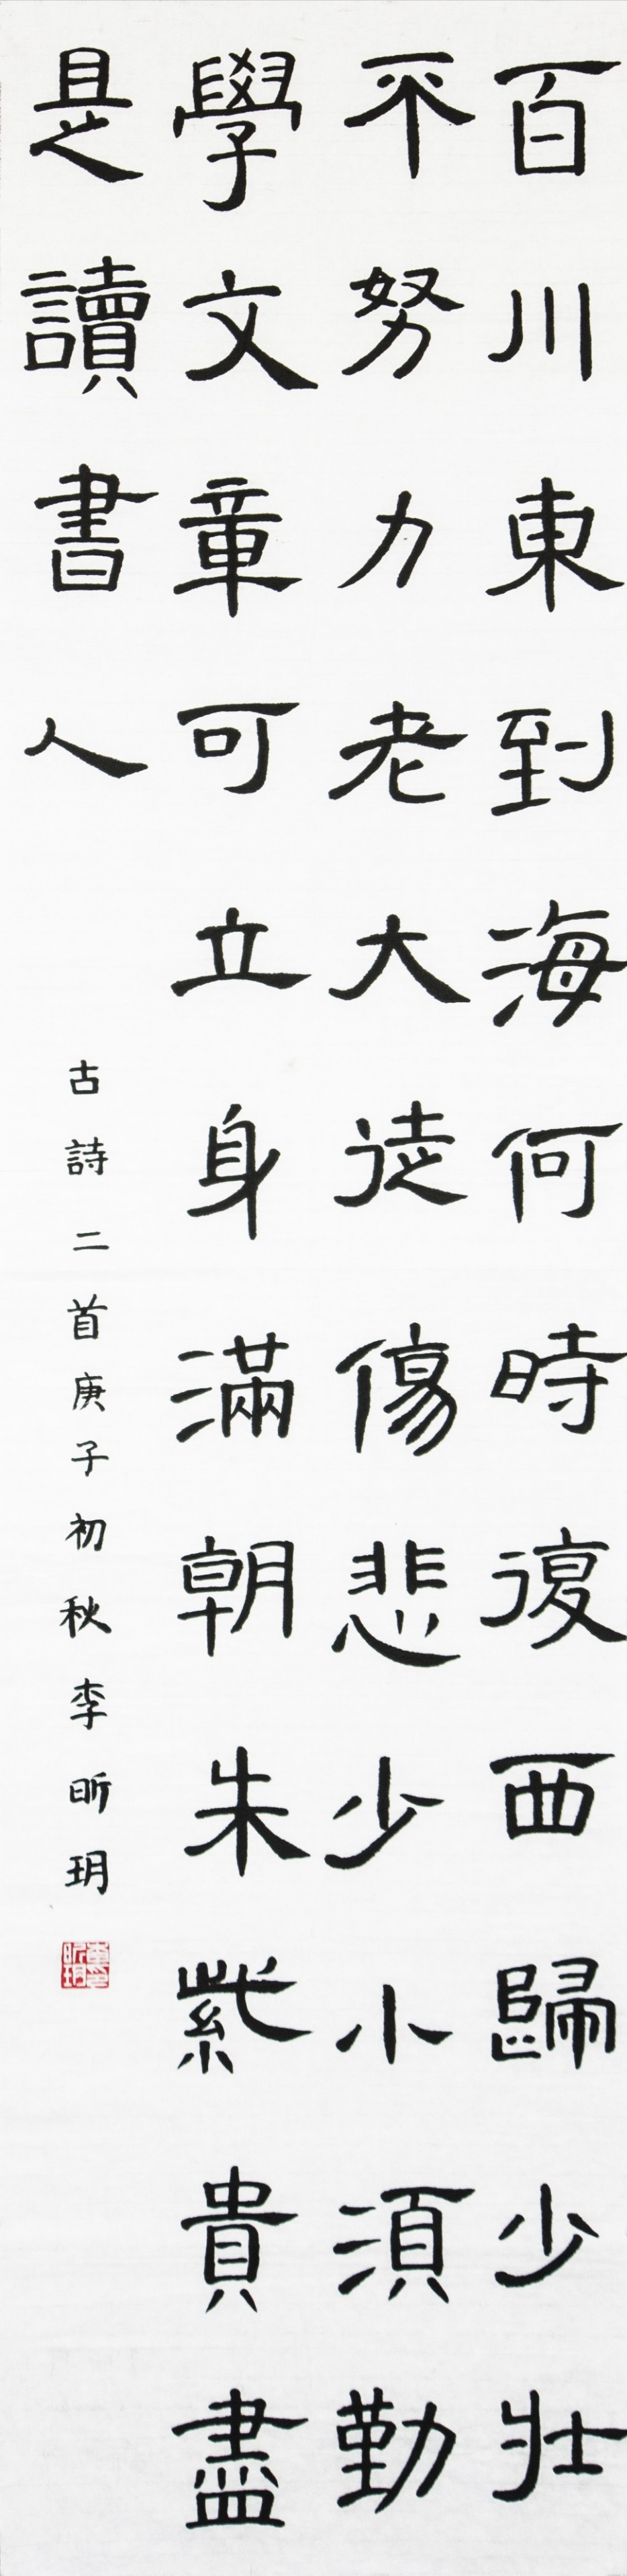 百川東到海何時復西歸少壯
不努力老大徒傷悲少小須勤
學文章可立身滿朝朱紫貴盡
是讀書人
古詩二首庚子初秋李昕玥